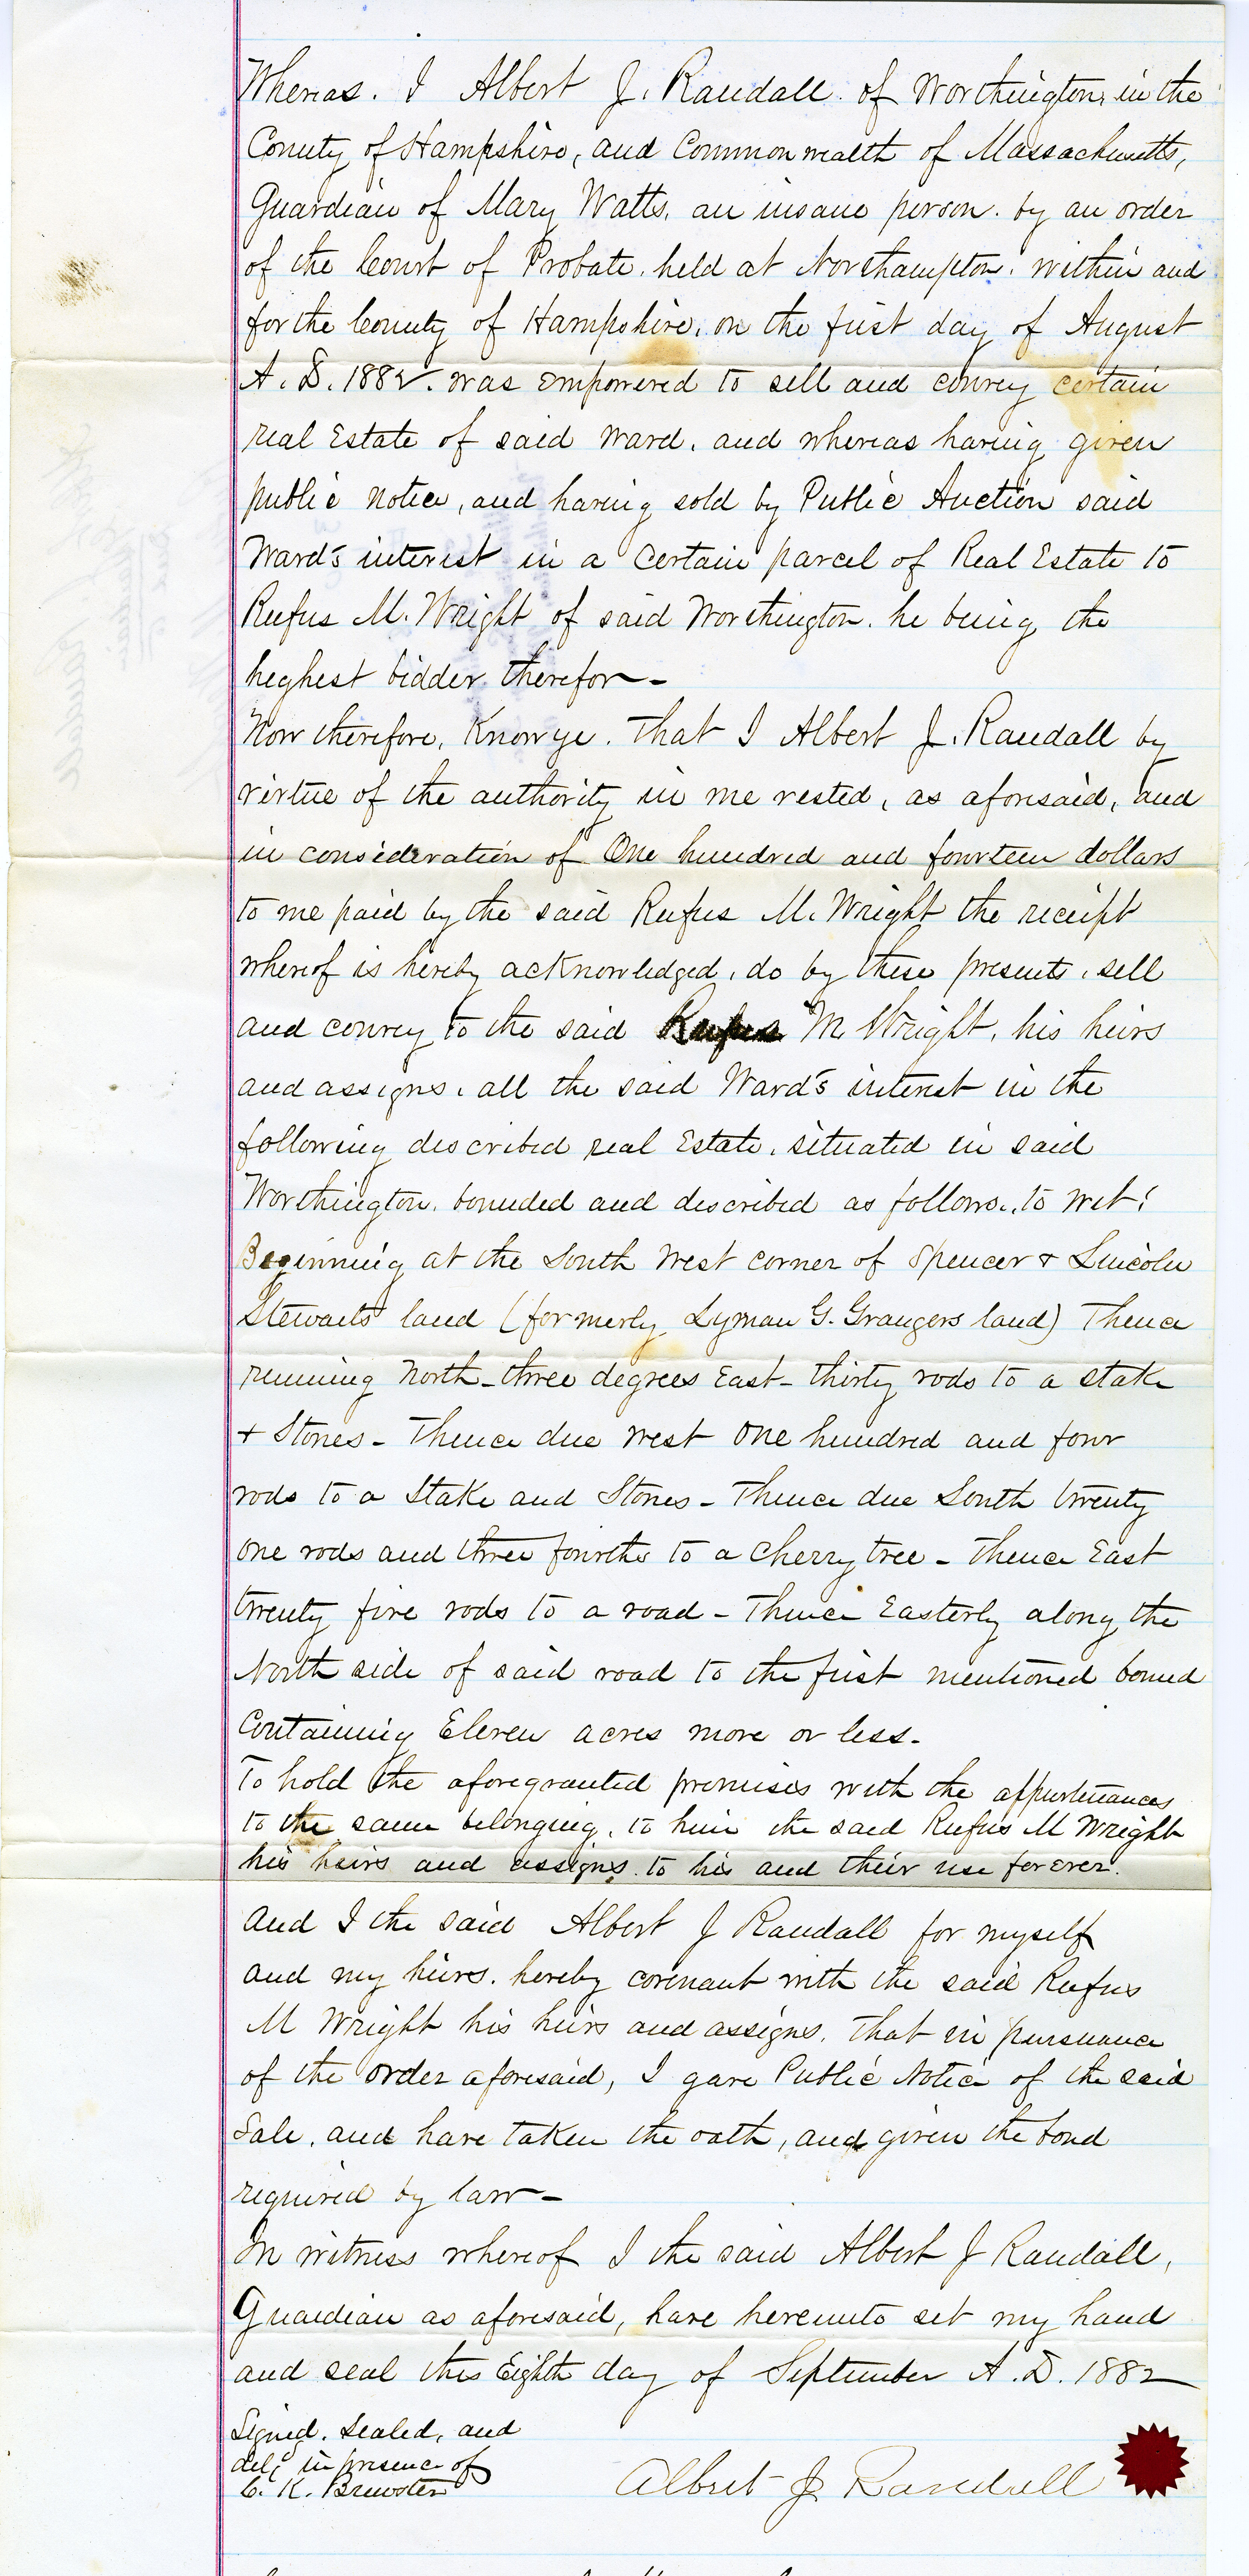 Whereas. I Albert J. Randall of Worthington, in the
County of Hampshire, and Commonwealth of Massachusetts,
Guardian of Mary Watts, an insane person. by an order
of the Court of Probate. held at Northampton. within and
for the County of Hampshire, on the first day of August
A. D. 1882. was empowered to sell and convey certain
real Estate of said Ward, and whereas having given
public notice, and having sold by Public Auction said
Ward's interest in a certain parcel of Real Estate to
Rufus M. Wright of said Worthington. he being the
heghest bidder therefor-
Now therefore, Know ye. That I Albert J. Randall by
virtue of the authority in me vested, as aforesaid, and
in consideration of One hundred and fourteen dollars
to me paid by the said Rufus M. Wright the receipt
whereof is hereby acknowledged, do by these presents, sell
and convey to the said Rufus M Wright, his heirs
and assigns, all the said Ward's interest in the
following described real Estate, situated in said
Worthington, bounded and described as follows, to wit:
Beginning at the South West corner of Spencer & Lincoln
Stewarts land (formerly Lyman G. Grangers land) Thence
running North - three degrees East - thirty rods to a stake
& Stones - Thence due West One hundred and four
rods to a Stake and Stones - Thence due South twenty
one rods and three fourths to a Cherry tree - Thence East
twenty five rods to a road - Thence Easterly along the
North side of said road to the first mentioned bound
Containing Eleven acres more or less.
To hold the aforegranted premises with the appurtenances
to the same belonging, to him the said Rufus M Wright
his heirs and assigns. to his and their use forever.
And I the said Albert J Randall for myself
and my heirs. hereby covenant with the said Rufus
M Wright his heirs and assigns, that in pursuance
of the order aforesaid, I gave Public Notice of the said
Sale, and have taken the oath, and given the bond
required by law -
In witness whereof I the said Albert J Randall,
Guardian as aforesaid, have hereunto set my hand
and seal this Eighth day of September A. D. 1882
Signed. Sealed, and
del'd in presence of
C. K. Brewster
Albert J Randall